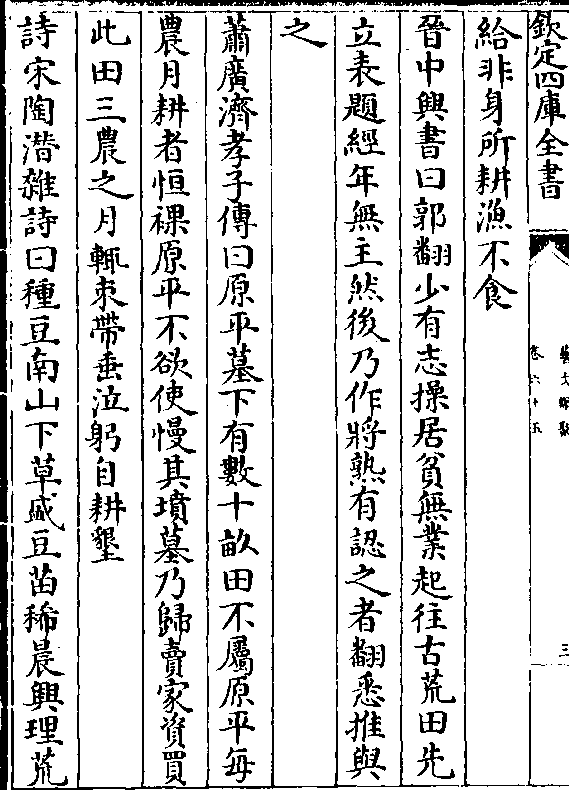 欽定四庫全書
藝文類聚
卷六十五
三
給非身所耕漁不食
晉中興書曰郭翻少有志操居貧無業起往古荒田先
立表題經年無主然後乃作將熟有認之者翻悉推與
之
蕭廣濟孝子傳曰原平墓下有數十畝田不屬原平每
農月耕者恒裸原平不欲使慢其墳墓乃歸賣家資買
此田三農之月輒束帶垂泣躬自耕墾
詩宋陶潛雜詩曰種豆南山下草盛豆苗稀晨興理荒